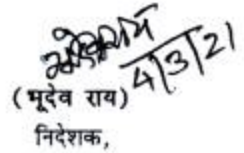 4/3/21
(भूदेव राय)
निदेशक,